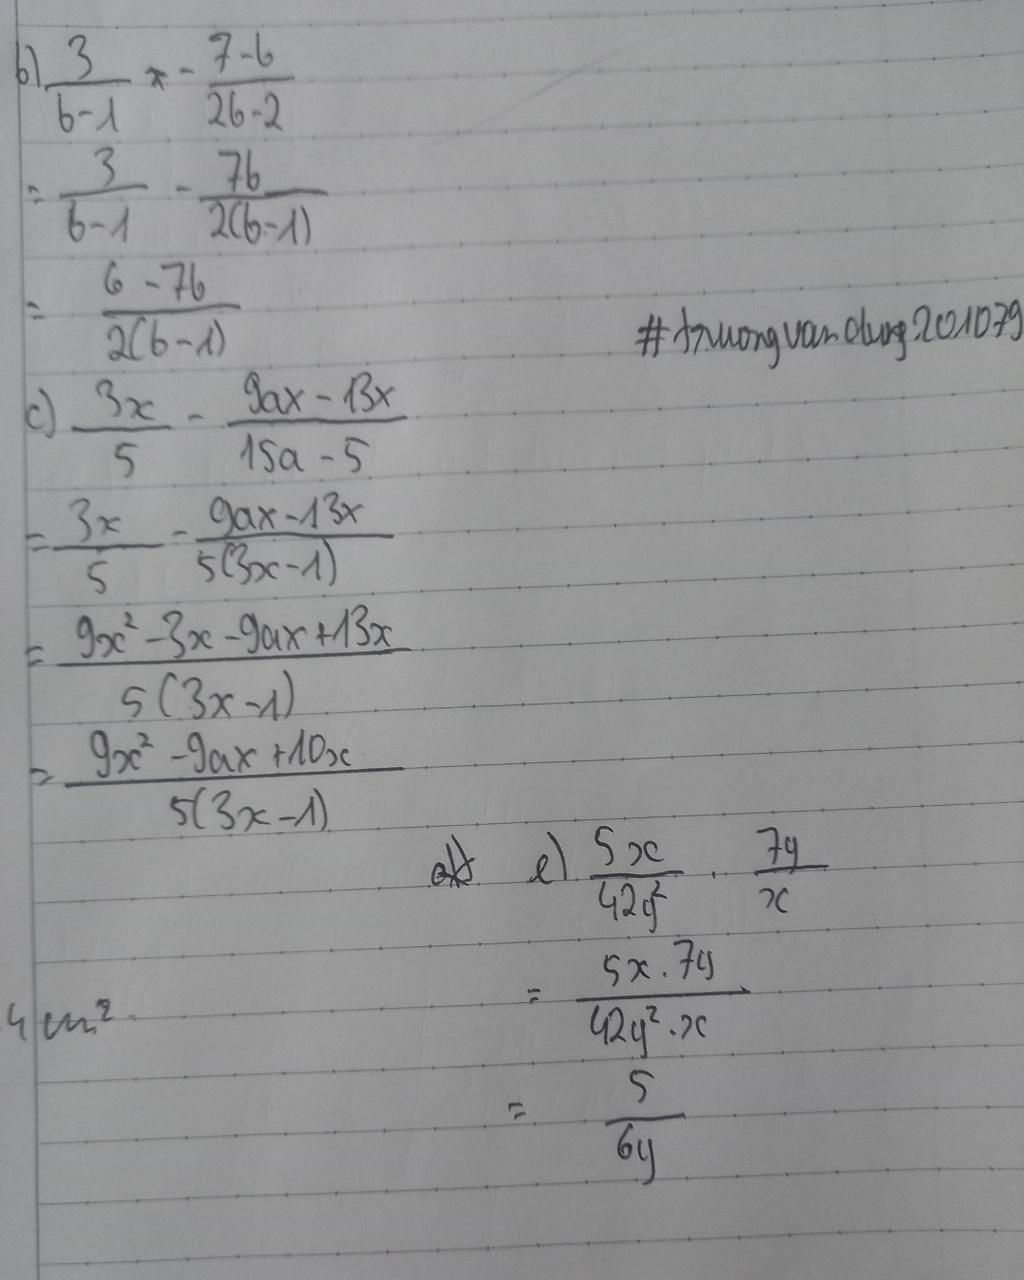 b) \frac{3}{b-1} - \frac{7-b}{2b-2}
= \frac{3}{b-1} - \frac{7b}{2(b-1)}
= \frac{6-7b}{2(b-1)}
#truongvandung201079
c) \frac{3x}{5} - \frac{9ax-13x}{15a-5}
= \frac{3x}{5} - \frac{9ax-13x}{5(3x-1)}
= \frac{9x^2-3x-9ax+13x}{5(3x-1)}
= \frac{9x^2-9ax+10x}{5(3x-1)}
e) \frac{5x}{42y^2} . \frac{7y}{x}
= \frac{5x.7y}{42y^2.x}
4 cm^2
= \frac{5}{6y}